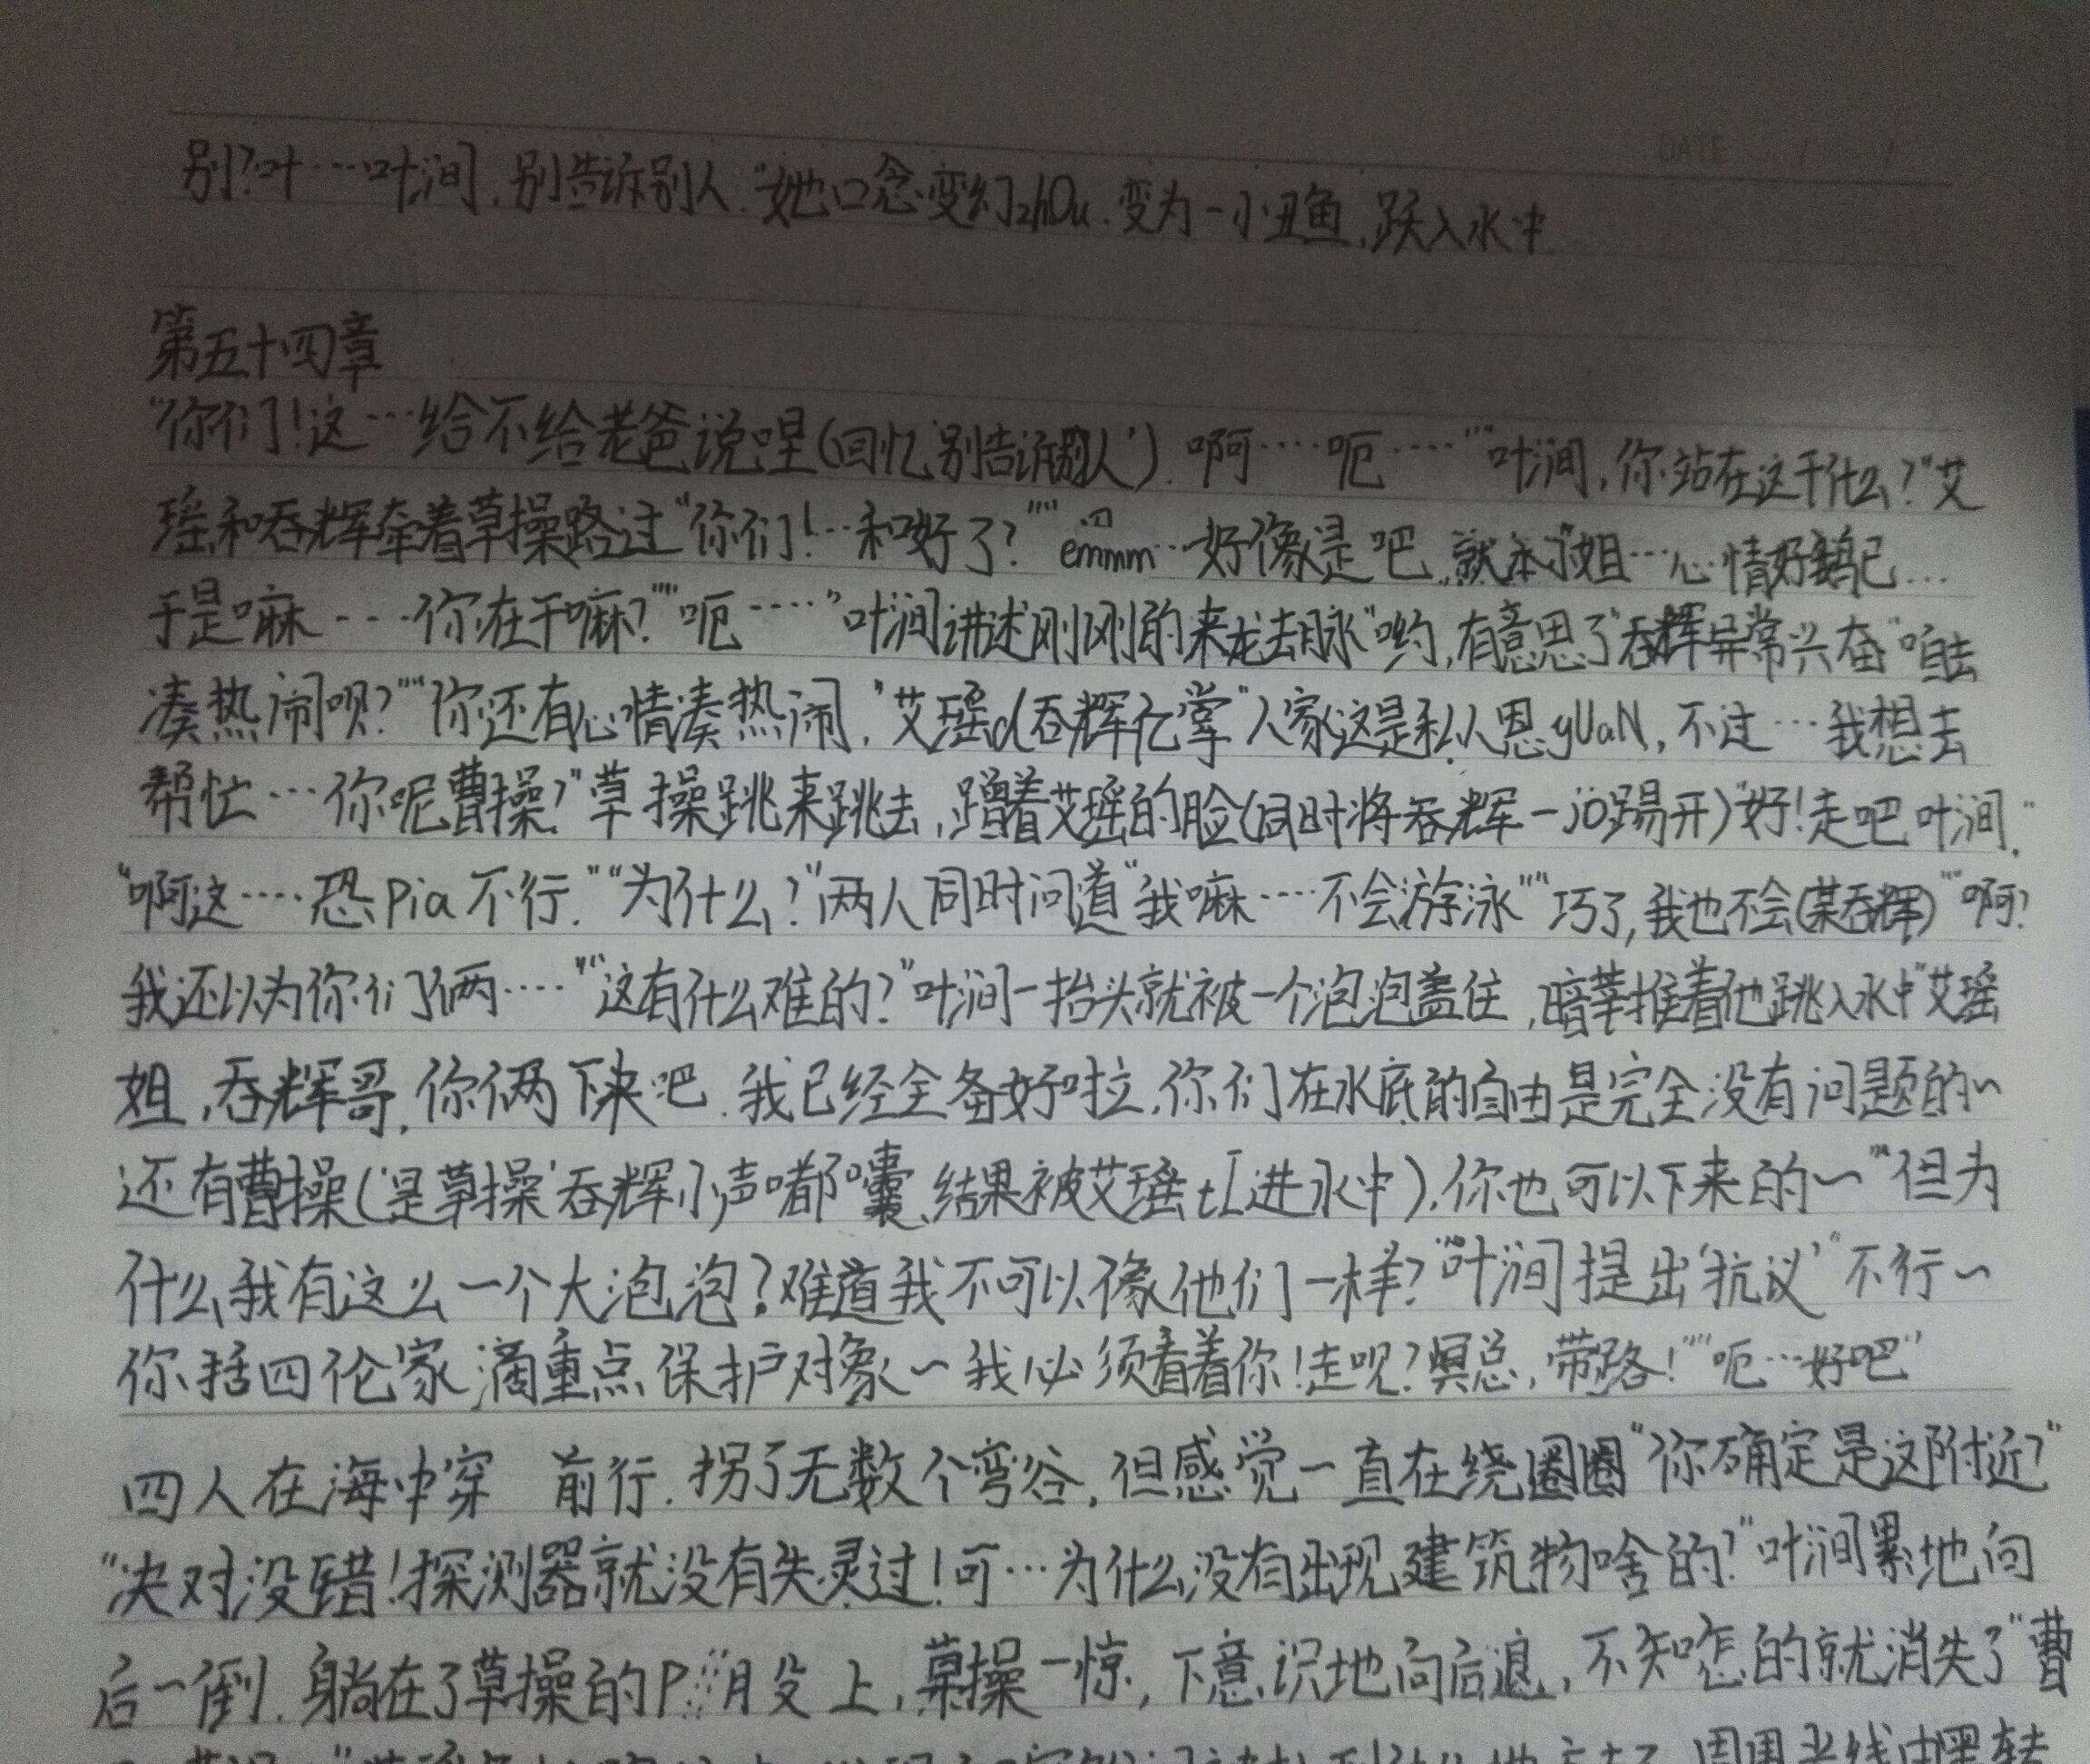 DATE / /
别?叶…叶涧,别告诉别人."她口念变幻zhOu.变为一小丑鱼,跃入水中
第五十四章
"你们!这…给不给老爸说哩(回忆'别告诉别人').啊……呃……""叶涧,你站在这干什么?"艾
瑶和吞辉牵着草操路过"你们!…和好了?""emmm…好像是吧,就本小姐…心情好鹅已…
于是嘛……你在干嘛?""呃……"叶涧讲述刚刚的来龙去脉"哟,有意思了"吞辉异常兴奋"咱去
凑热闹呗?""你还有心情凑热闹,"艾瑶d吞辉亿掌"人家这是私人恩yUaN,不过…我想去
帮忙…你呢曹操?"草操跳来跳去,蹭着艾瑶的脸(同时将吞辉一jo踢开)"好!走吧叶涧."
"啊这……恐Pia不行.""为什么?"两人同时问道"我嘛……不会游泳""巧了,我也不会(某吞辉)""啊?
我还以为你们俩……""这有什么难的?"叶涧一抬头就被一个泡泡盖住,暗莘推着他跳入水中"艾瑶
姐,吞辉哥,你俩下来吧.我已经全备好啦,你们在水底的自由是完全没有问题的~
还有曹操('是草操'吞辉小声嘟囔,结果被艾瑶tI进水中),你也可以下来的~""但为
什么我有这么一个大泡泡?难道我不可以像他们一样?"叶涧提出'抗议'"不行~
你括四伦家滴重点保护对象~我必须看着你!走呗?冥总,带路!""呃…好吧"
四人在海中穿 前行.拐了无数个弯谷,但感觉一直在绕圈圈"你确定是这附近?"
"决对没错!探测器就没有失灵过!可…为什么没有出现建筑物啥的?"叶涧累地向
后一倒.躺在了草操的P月殳上,草操一惊,下意识地向后退,不知咋的就消失了"曹